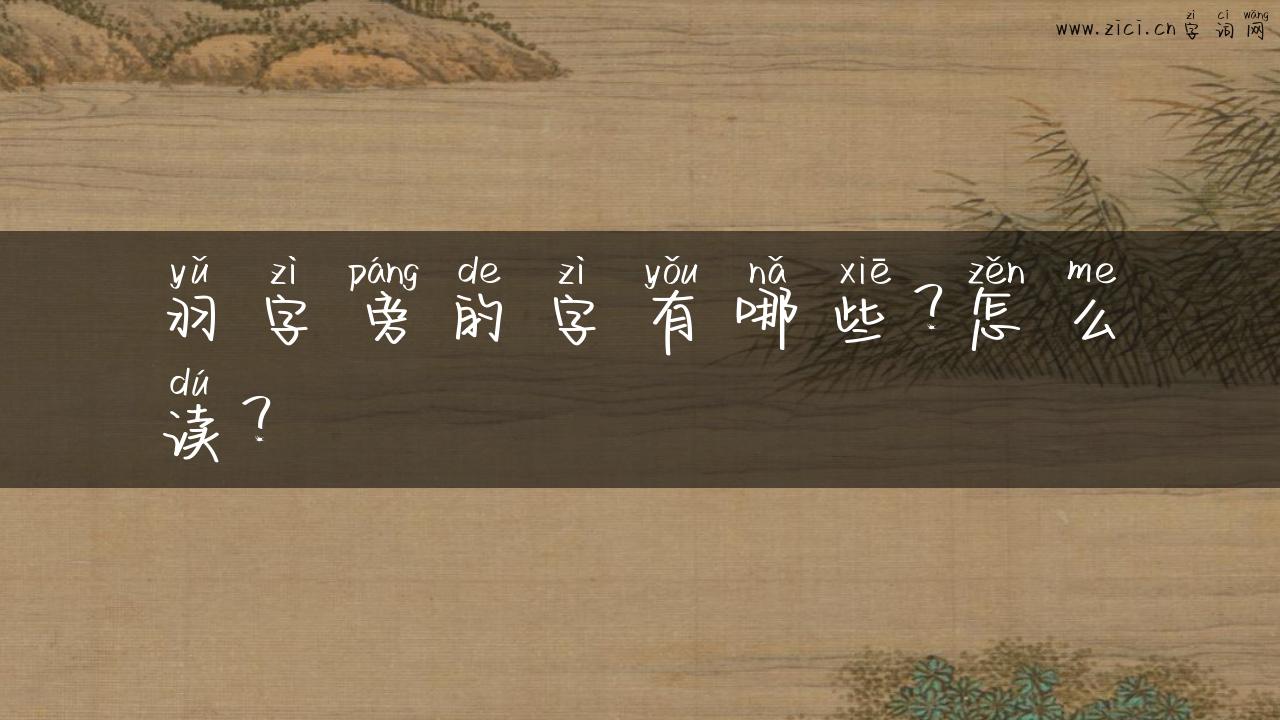 zì cí wǎng
www.zici.cn 字词网
yǔ zì páng de zì yǒu nǎ xiē zěn me
羽字旁的字有哪些？怎么
dú
读？